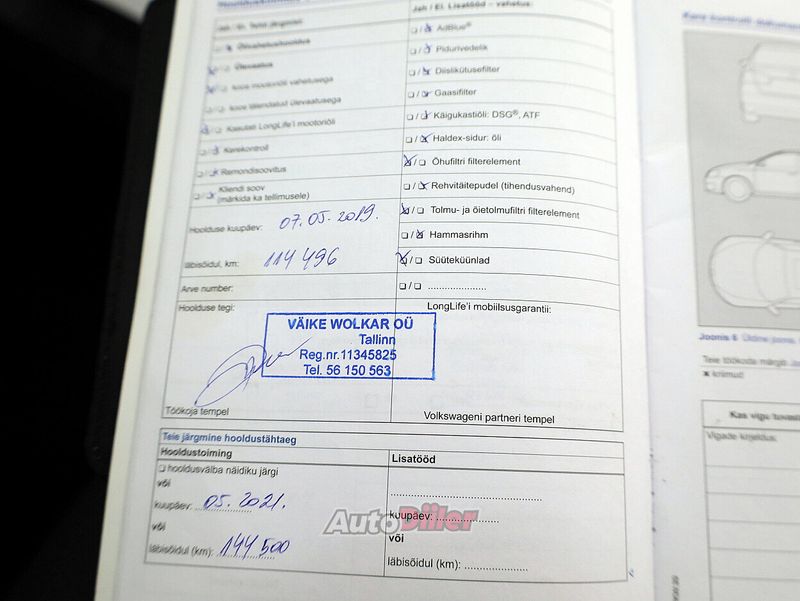 Jah / Ei. Lisatööd – vahetus:
AdBlue®
Õlivahetushooldus
Pidurivedelik
Ülevaatus
Diislikütusefilter
koos mootoriõli vahetusega
Gaasifilter
koos täiendatud ülevaatusega
Käigukastiõli: DSG®, ATF
Kasutati LongLife'i mootoriõli
Haldex-sidur: õli
Kerekontroll
Õhufiltri filterelement
Remondisoovitus
Rehvitäitepudel (tihendusvahend)
Kliendi soov
(märkida ka tellimusele)
Tolmu- ja õietolmufiltri filterelement
Hoolduse kuupäev: 07.05.2019.
Hammasrihm
läbisõidul, km: 114 496
Süüteküünlad
Arve number:
Hoolduse tegi:
LongLife'i mobiilsusgarantii:
VÄIKE WOLKAR OÜ
Tallinn
Reg.nr.11345825
Tel. 56 150 563
Töökoja tempel
Volkswageni partneri tempel
Teie järgmine hooldustähtaeg
Hooldustoiming
Lisatööd
hooldusvälba näidiku järgi
või
kuupäev: 05.2021.
kuupäev:
või
või
läbisõidul (km): 144 500
läbisõidul (km):
AutoDiiler
Joonis 6
Teie töökoda märgib
x kriimud
Kas vigu
Vigade kirjeldus: